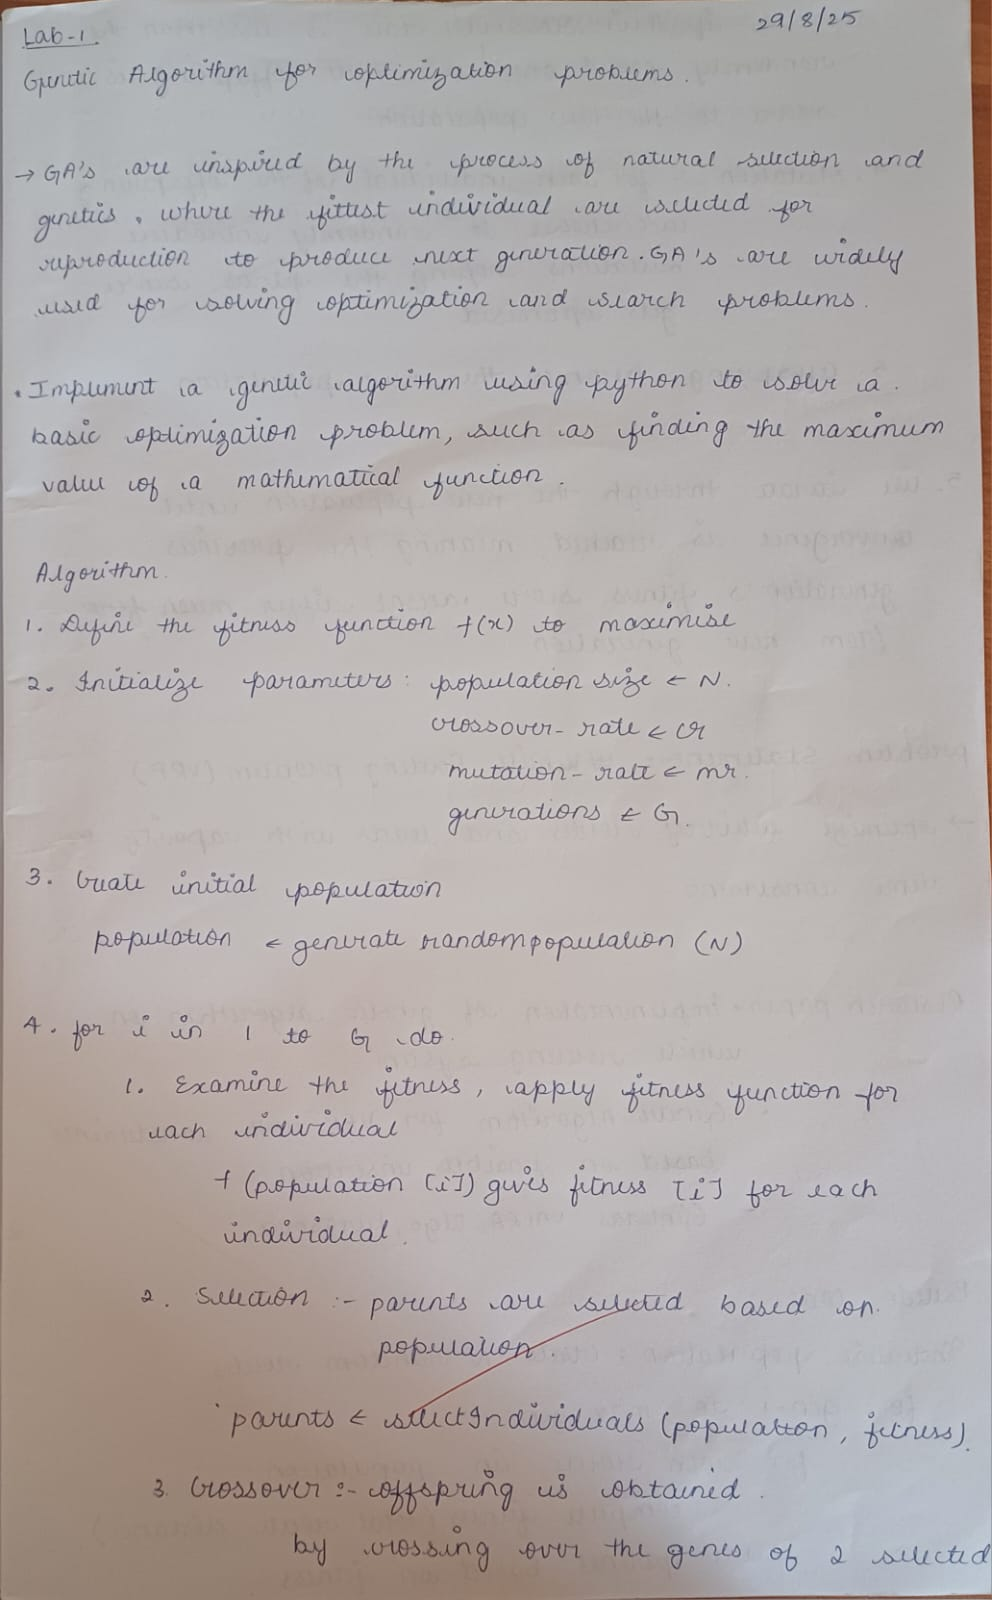 Lab-1.
29/8/25
Genetic Algorithm for optimization problems.
→ GA's are inspired by the process of natural selection and
genetics, where the fittest individual are selected for
reproduction to produce next generation. GA's are widely
used for solving optimization and search problems.
• Implement a genetic algorithm using python to solve a
basic optimization problem, such as finding the maximum
value of a mathematical function.
Algorithm.
1. Define the fitness function f(x) to maximise
2. Initialize parameters: population size ← N.
crossover-rate ← cr
mutation-rate ← mr.
generations ← G.
3. Create initial population
population ← generate randompopulation (N)
4. for i in 1 to G do.
1. Examine the fitness, apply fitness function for
each individual
f (population [i]) gives fitness [i] for each
individual.
2. Selection :- parents are selected based on.
population.
parents ← selectIndividuals (population, fitness).
3. Crossover :- offspring is obtained.
by crossing over the genes of 2 selected